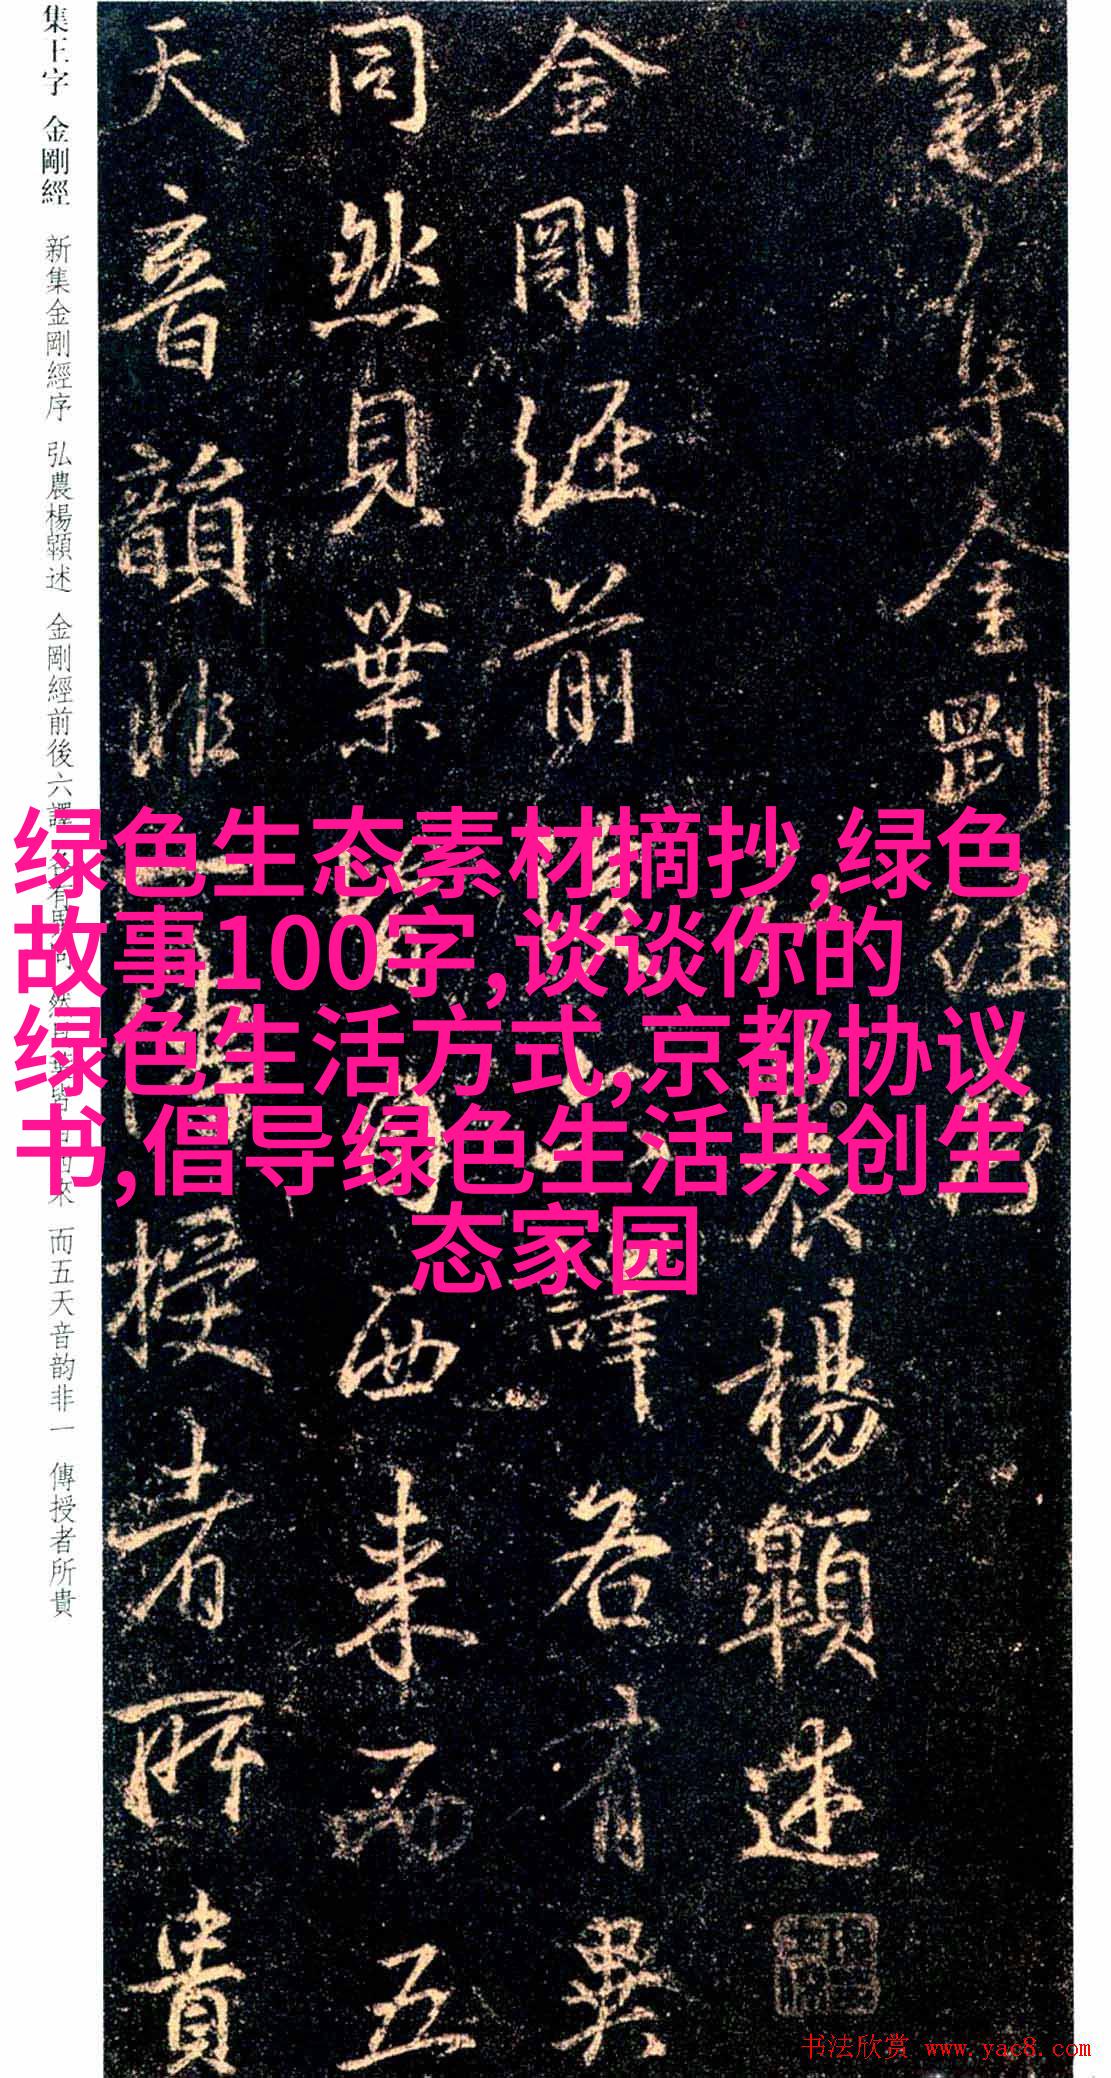 新集金剛經序
農楊顥述
金剛經前後六譯各有異
同然貝葉皆自西来而五
天音韻非一傳授者所貴
集王字 金剛經 新集金剛經序 弘農楊顥述 金剛經前後六譯 各有異同 然貝葉皆自西來 而五天音韵非一 傳授者所貴
绿色生态素材摘抄,绿色
故事100字,谈谈你的
绿色生活方式,京都协议
书,倡导绿色生活共创生
态家园
书法欣赏 www.yac8.com